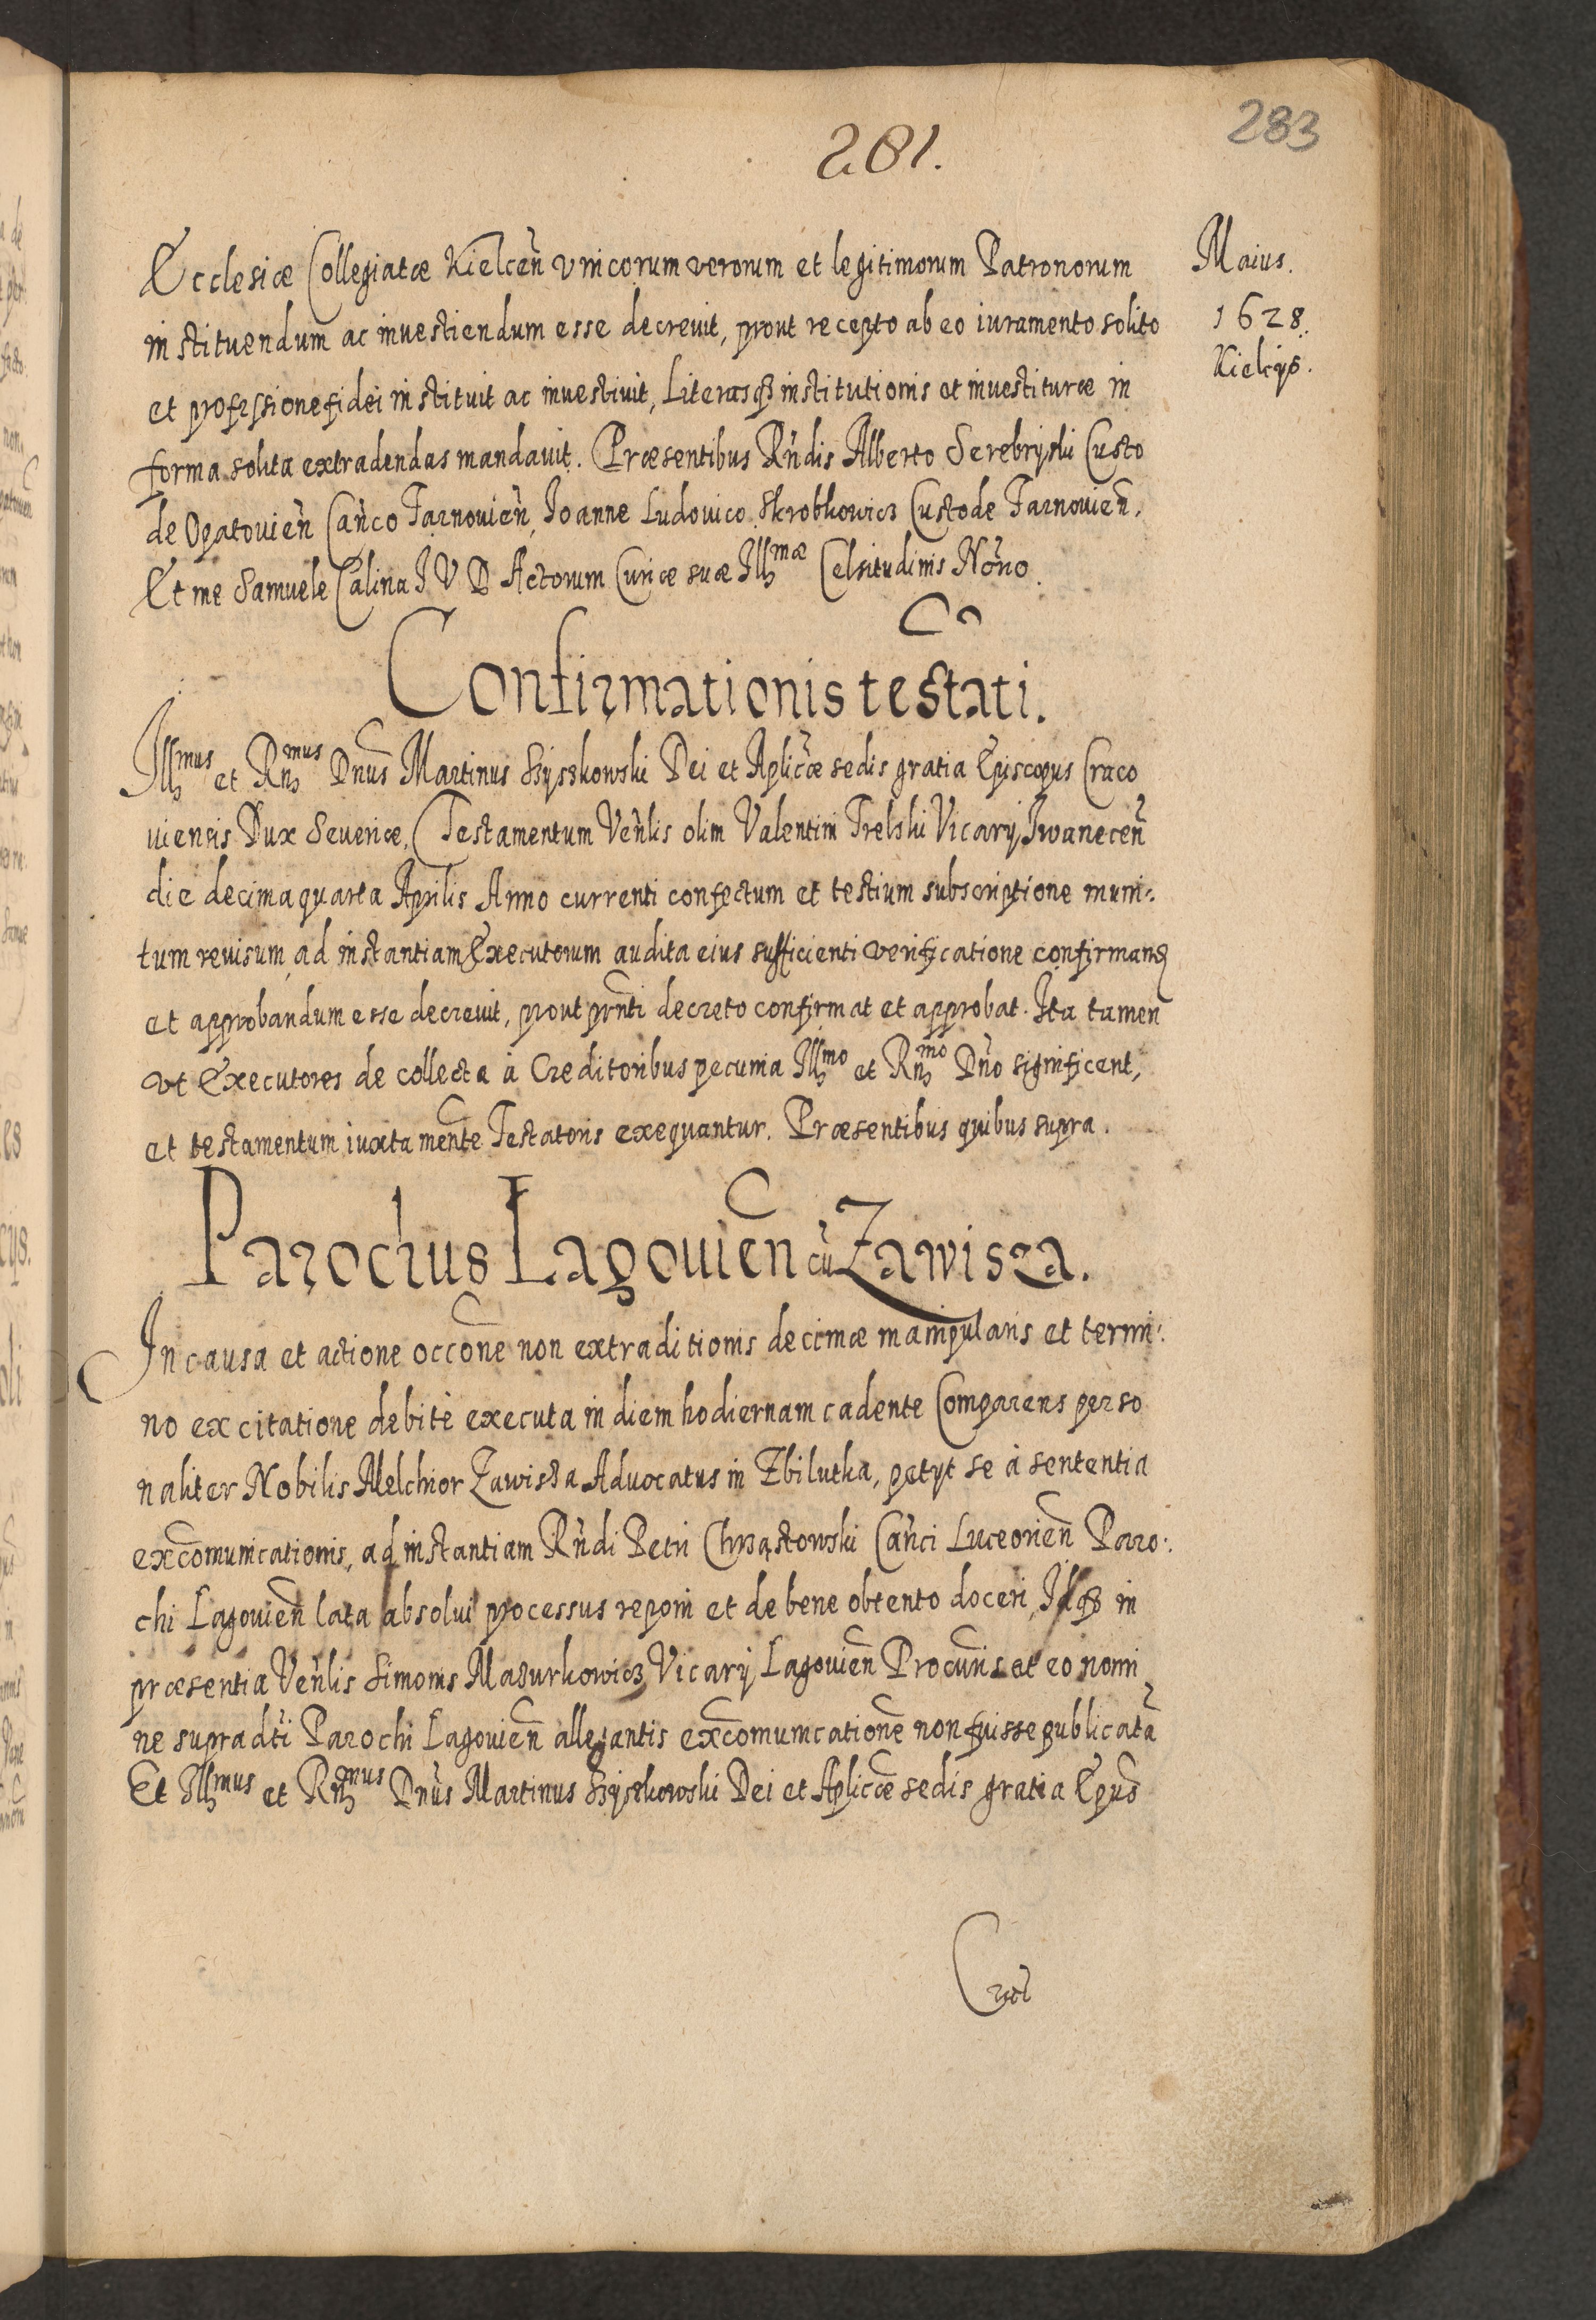 281.
283
Maius.
1628.
Kielcijs.
Ecclesiæ Collegiatæ Kielceñ vnicorum verorum et legitimorum Patronorum
instituendum ac inuestiendum esse decreuit, prout recepto ab eo iuramento solito
et professione fidei instituit ac inuestiuit, Literasqȝ institutionis et inuestituræ in
forma solita extradendas mandauit. Præsentibus Rñdis Alberto Serebryski Custo
de Opatouieñ Cañco Tarnouieñ, Joanne Ludouico Skrobkowicz Custode Tarnouieñ.
Et me Samuele Calina J V D Actorum Curiæ suæ Illmæ Celsitudinis Nõrio.
Confirmationis testati.
Illmus et Rñmus Dñus Martinus Szyszkowski Dei et Aplicæ sedis gratia Episcopus Craco
uiensis Dux Seueriæ, Testamentum Veñlis olim Valentini Trelski Vicarij Iwaneceñ
die decima quarta Aprilis Anno currenti confectum et testium subscriptione muni:
tum reuisum, ad instantiam Executorum audita eius sufficienti verificatione confirmand
et approbandum esse decreuit, prout prñti decreto confirmat et approbat. Ita tamen
vt Executores de collecta à Creditoribus pecunia Illmo et Rñmo Dño significent,
et testamentum iuxta mentẽ Testatoris exequantur. Præsentibus quibus supra.
Parochus Lagouieñ cũ Zawisza.
In causa et actione occõne non extraditionis decimæ manipularis et termi:
no ex citatione debitè executa in diem hodiernam cadente Comparens perso
naliter Nobilis Melchior Zawisza Aduocatus in Zbilutka, petijt se à sententia
excõmunicationis, ad instantiam Rñdi Petri Chrząstowski Cañci Luceorieñ Paro:
chi Lagouieñ lata absolui processus reponi et de bene obtento doceri, Idqȝ in
præsentia Veñlis Simonis Mazurkowicz Vicarij Lagouieñ Procũris et eo nomi
ne supradti Parochi Lagouieñ allegantis excõmunicationẽ non fuisse publicatã
Et Illmus et Rñmus Dñus Martinus Szyszkowski Dei et Aplicæ sedis gratia Epũs